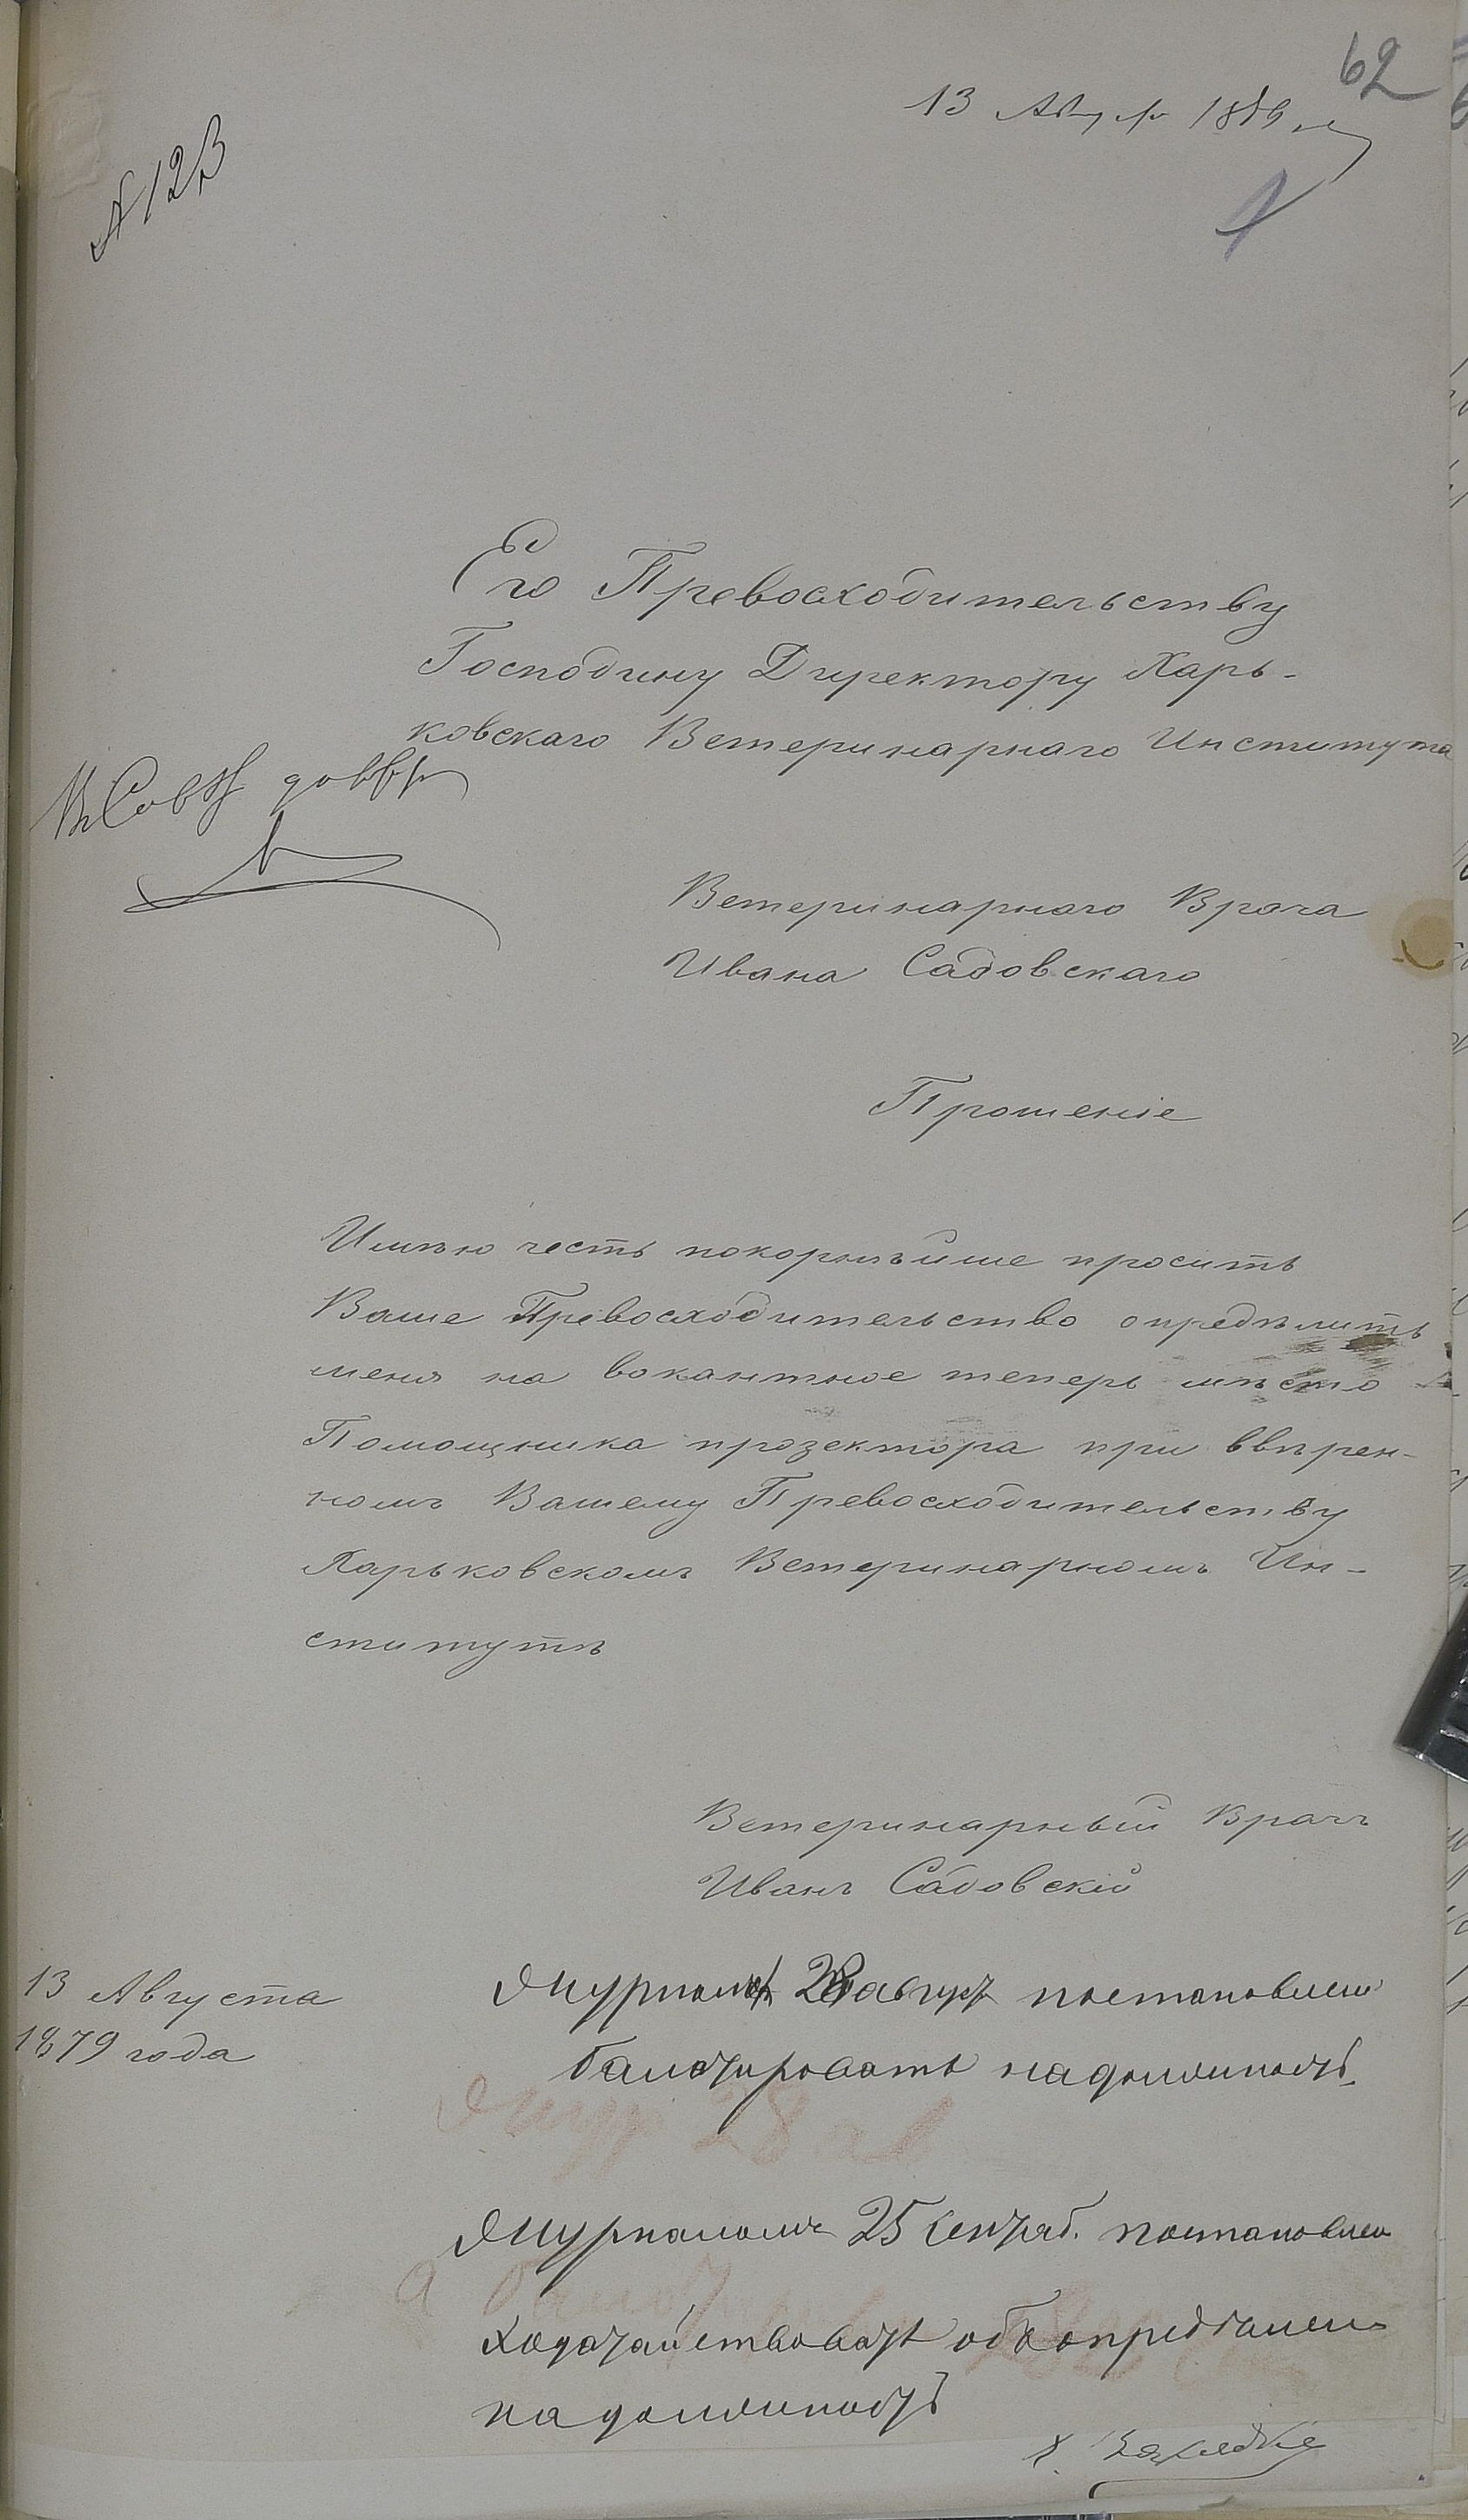 62
13 Авгу 1879
№ 123
Его Превосходительству
Господину Директору Харь-
ковскаго Ветеринарнаго Института
Въ Совѣт
Ветеринарнаго Врача
Ивана Садовскаго
Прошеніе
Имѣю честь покорнѣйше просить
Ваше Превосходительство опредѣлить
меня на вокантное теперь мѣсто
Помощника прозектора при ввѣрен-
номъ Вашему Превосходительству
Харьковскомъ Ветеринарномъ Ин-
ститутѣ
Ветеринарный Врачъ
Иванъ Садовскій
13 Августа
1879 года
Журналомъ 28 август постановлено
балотировать на должность.
Жур 28 ав
Журналомъ 25 Сентяб. постановлено
ходатайствовать объ опредѣлен
на должность